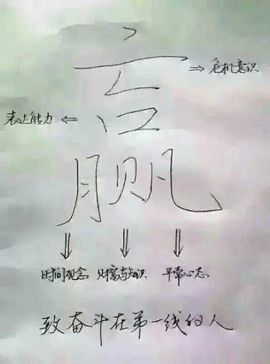 赢
危机意识
表达能力
时间观念 财富知识 平常心态
致奋斗在第一线的人